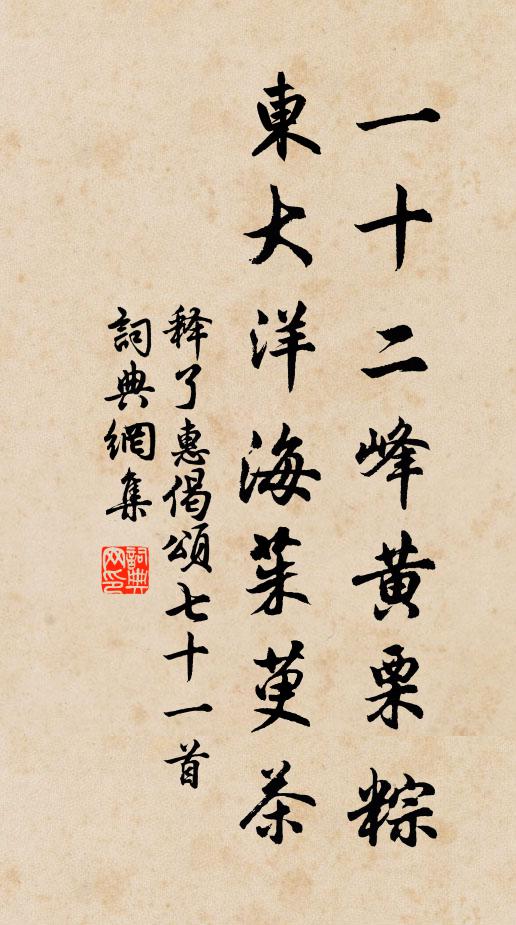 一十二峰黄栗粽
東大洋海茱萸茶
释了惠偈頌七十一首
詞典網集
詞典网印